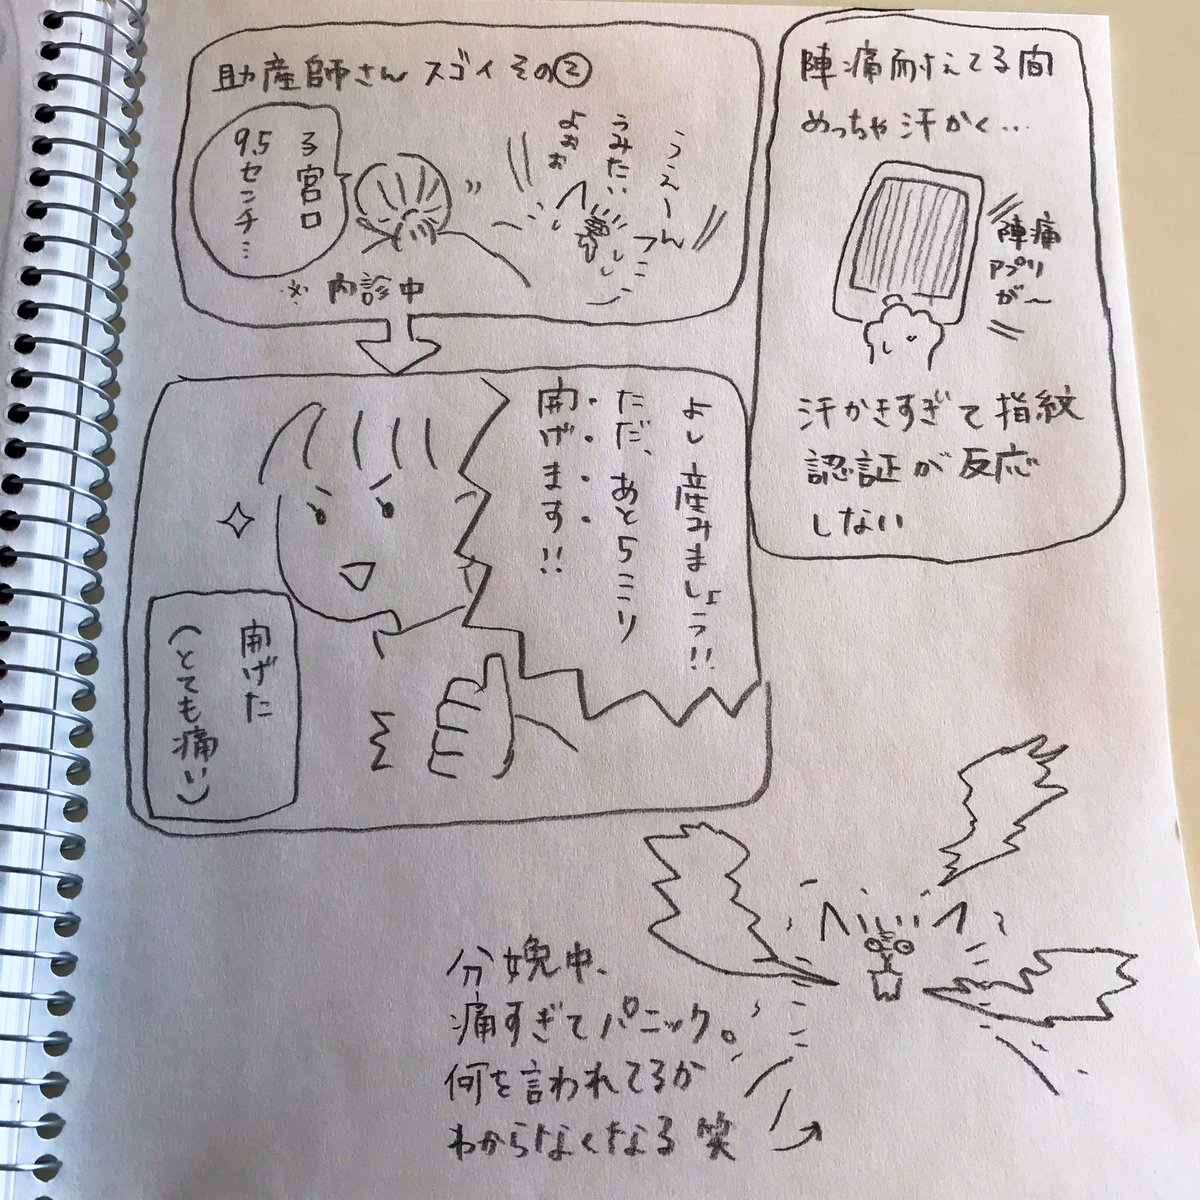 陣痛耐えてる間
めっちゃ汗かく…
陣痛
アプリ
が〜
汗かきすぎて指紋
認証が反応
しない
助産師さん スゴイ その②
うぇーん
うみたい
よぉぉ
子宮口
9.5
センチ…
※ 内診中
よし産みましょう!!
ただ、あと5ミリ
開げます!!
開げた
(とても痛い)
分娩中、
痛すぎてパニック。
何を言われてるか
わからなくなる 笑